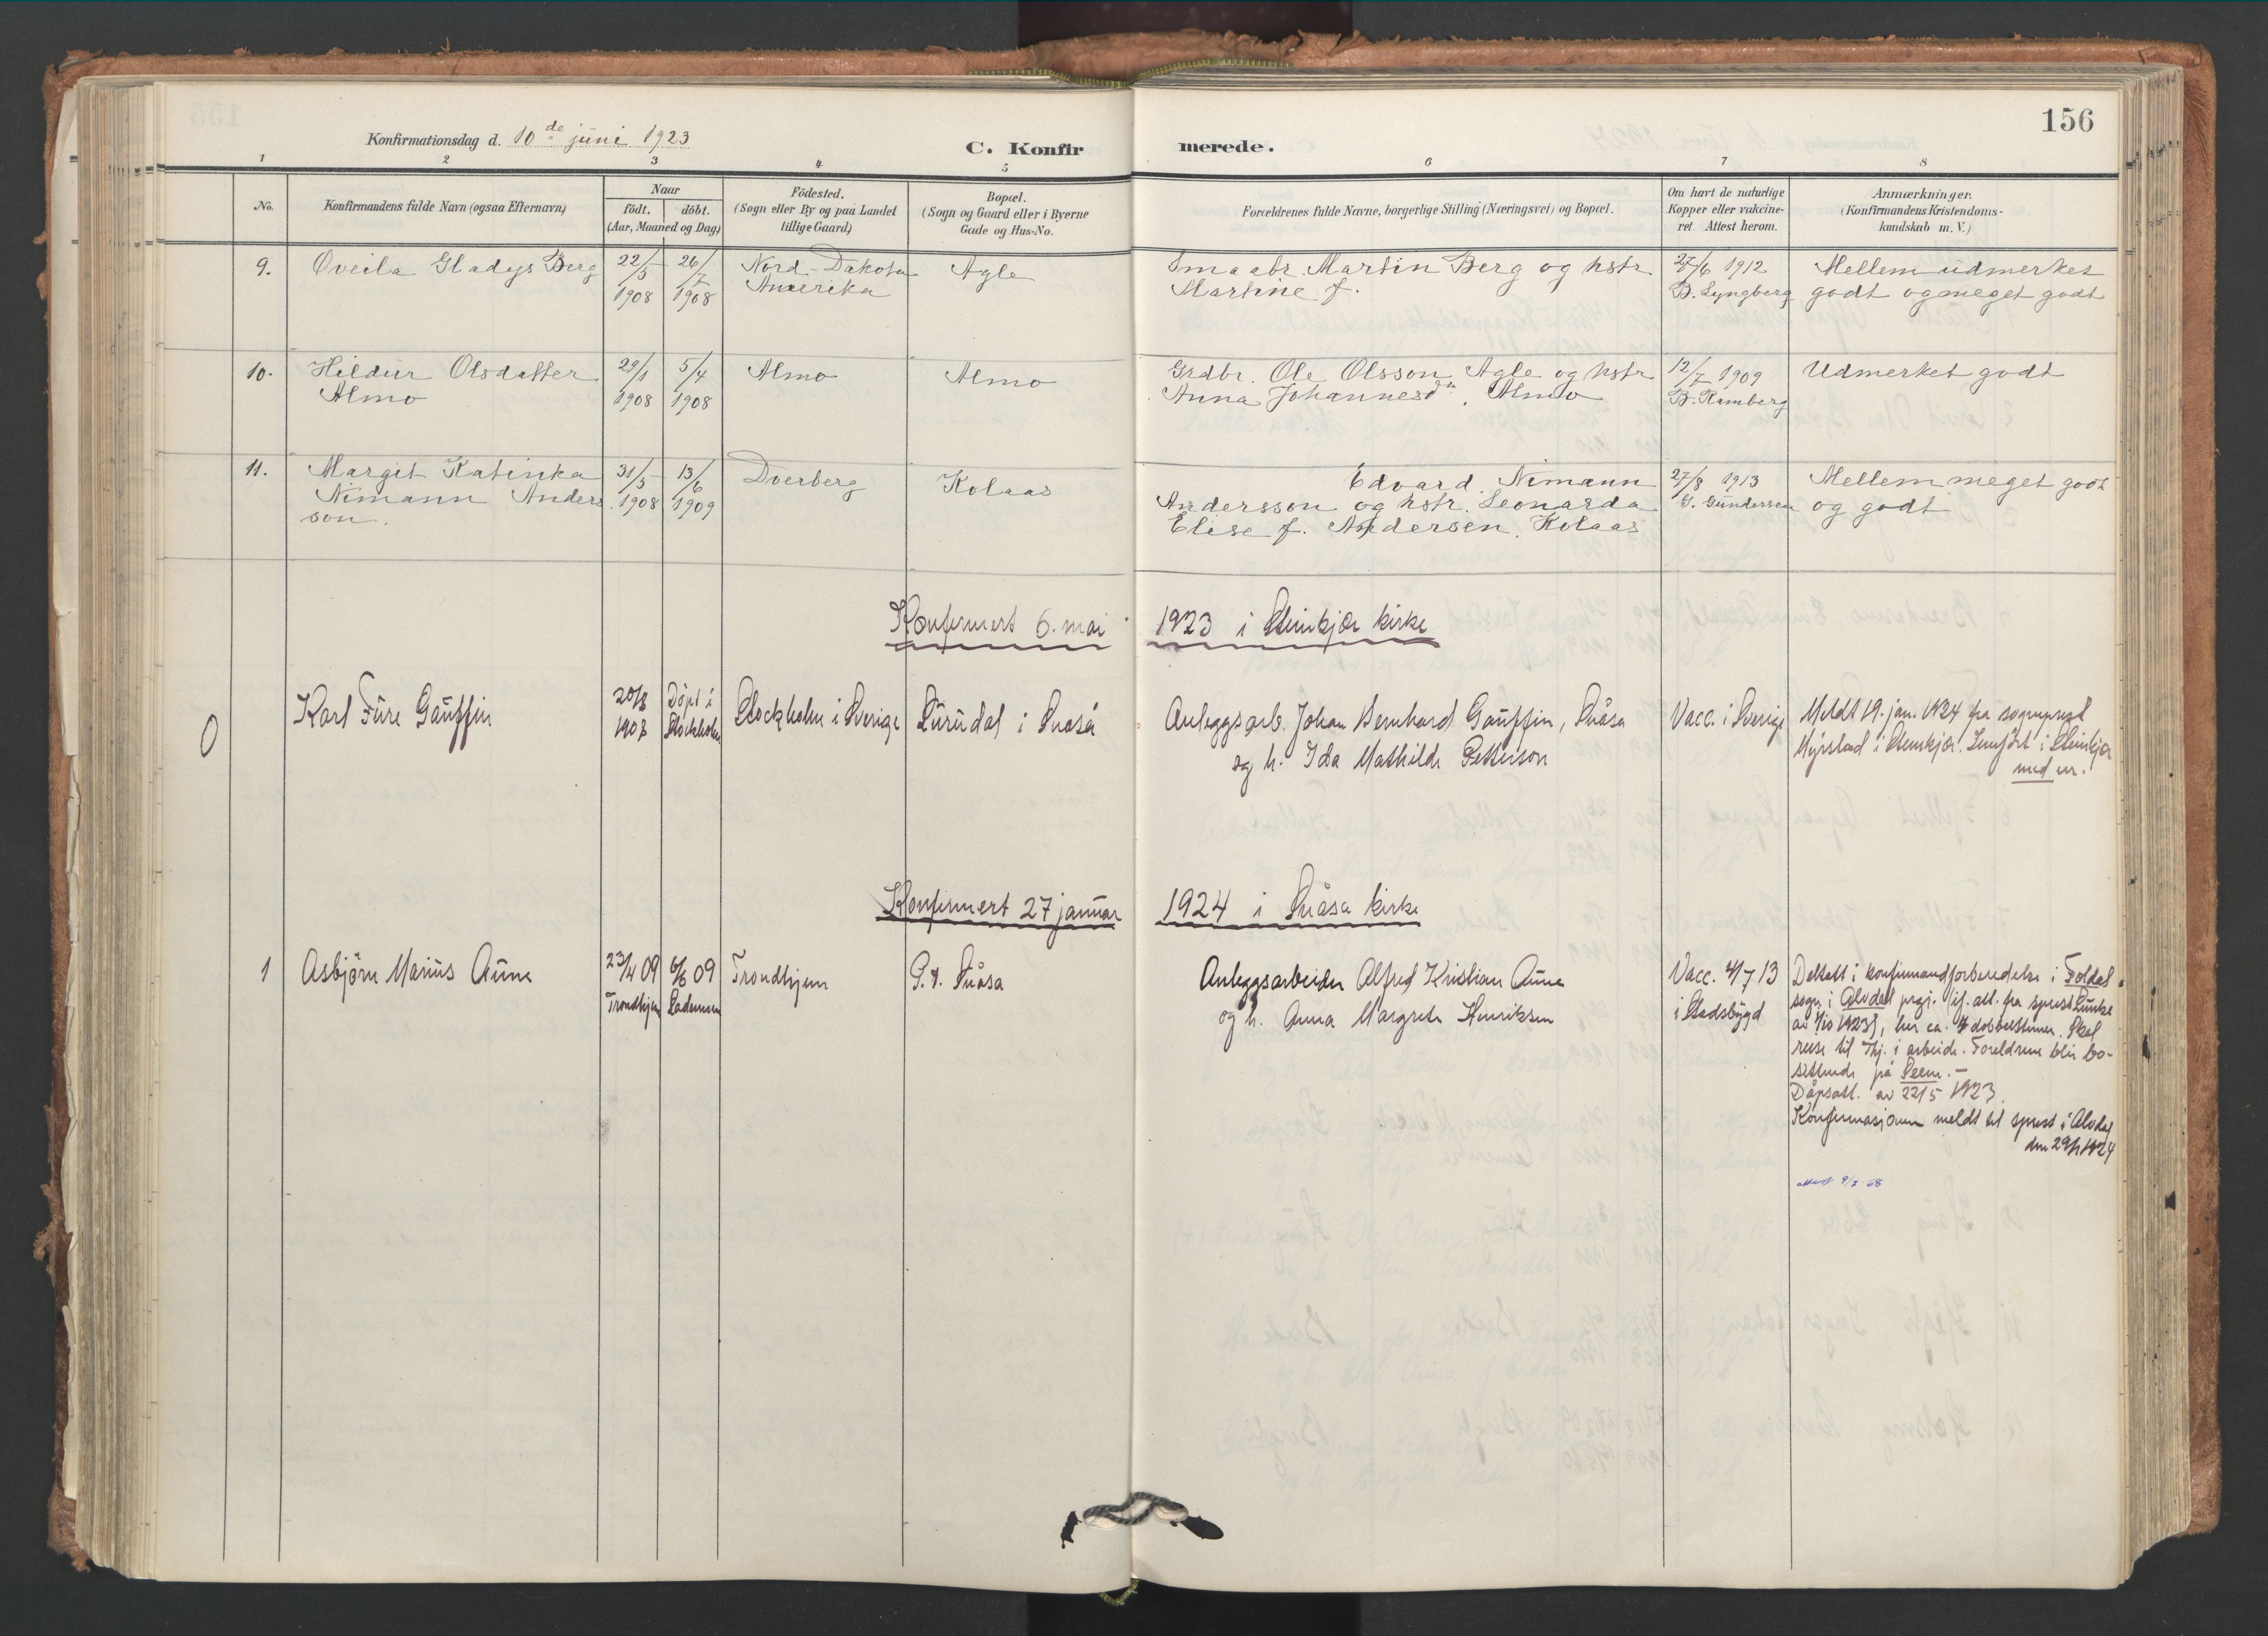 156
Konfirmationsdag d. 10de juni 1923
C. Konfirmerede.
1 2 3 4 5 6 7 8
No.
Konfirmandens fulde Navn (ogsaa Efternavn)
Naar
födt. döbt.
(Aar, Maaned og Dag)
Födested.
(Sogn eller By og paa Landet
tillige Gaard)
Bopæl.
(Sogn og Gaard eller i Byerne
Gade og Hus-No.
Forældrenes fulde Navne, borgerlige Stilling (Næringsvei) og Bopæl.
Om havt de naturlige
Kopper eller vakcine-
ret. Attest herom.
Anmærkninger.
(Konfirmandens Kristendoms-
kundskab m. V.)
9. Oveila Gladys Berg 22/5 26/7 Nord-Dakota Agle Smaabr. Martin Berg og hstr 27/6 1912 Mellem udmerket
1908 1908 Amerika Martine f. B. Lyngberg godt og meget godt
10. Hildur Olsdatter 29/1 5/4 Almo Almo Grdbr. Ole Olsson Agle og hstr 12/7 1909 Udmerket godt
Almo 1908 1908 Anna Johannesdtr, Almo B. Ramberg
11. Margit Katinka 31/5 13/6 Dverberg Kolaas Edvard Nimann 27/8 1913 Mellem meget godt
Nimann Anders 1908 1909 Andersson og hstr. Leonarda G. Gundersen og godt
son. Elise f. Andersen, Kolaas
Konfirmert 6. mai 1923 i Steinkjær kirke
0 Karl Ture Gauffin 20/8 Döpt i Stockholm i Sverige Lurudal i Snåsa Anleggsarb. Johan Bernhard Gauffin, Snåsa Vacc. i Sverige Meldt 19. jan. 1924 fra sogneprest
1908 Stockholm og h. Ida Mathilde Petterson Myrstad i Steinkjær. Innfört i Steinkjær
med nr.
Konfirmert 27 januar 1924 i Snåsa kirke
1 Asbjörn Marius Aune 23/4 09 6/6 09 Trondhjem P.t. Snåsa Anleggsarbeider Alfred Kristian Aune Vacc. 4/7 13 Deltatt i konfirmandforberedelse i Foldal
Trondhjem Lademoen og h. Anna Margrete Henriksen i Stadsbygd sogn i Alvdal prgj. if. att. fra sprest Lunke
av 1/10 1923, her ca. 7 dobbelttimer. Skal
reise til Thj. i arbeide. Foreldrene blir bo-
sittende på
Dåpsatt. av 22/5 1923.
Konfirmasjonen meldt til sprest i Alvdal
den 29/1 1924
attest 9/2 68